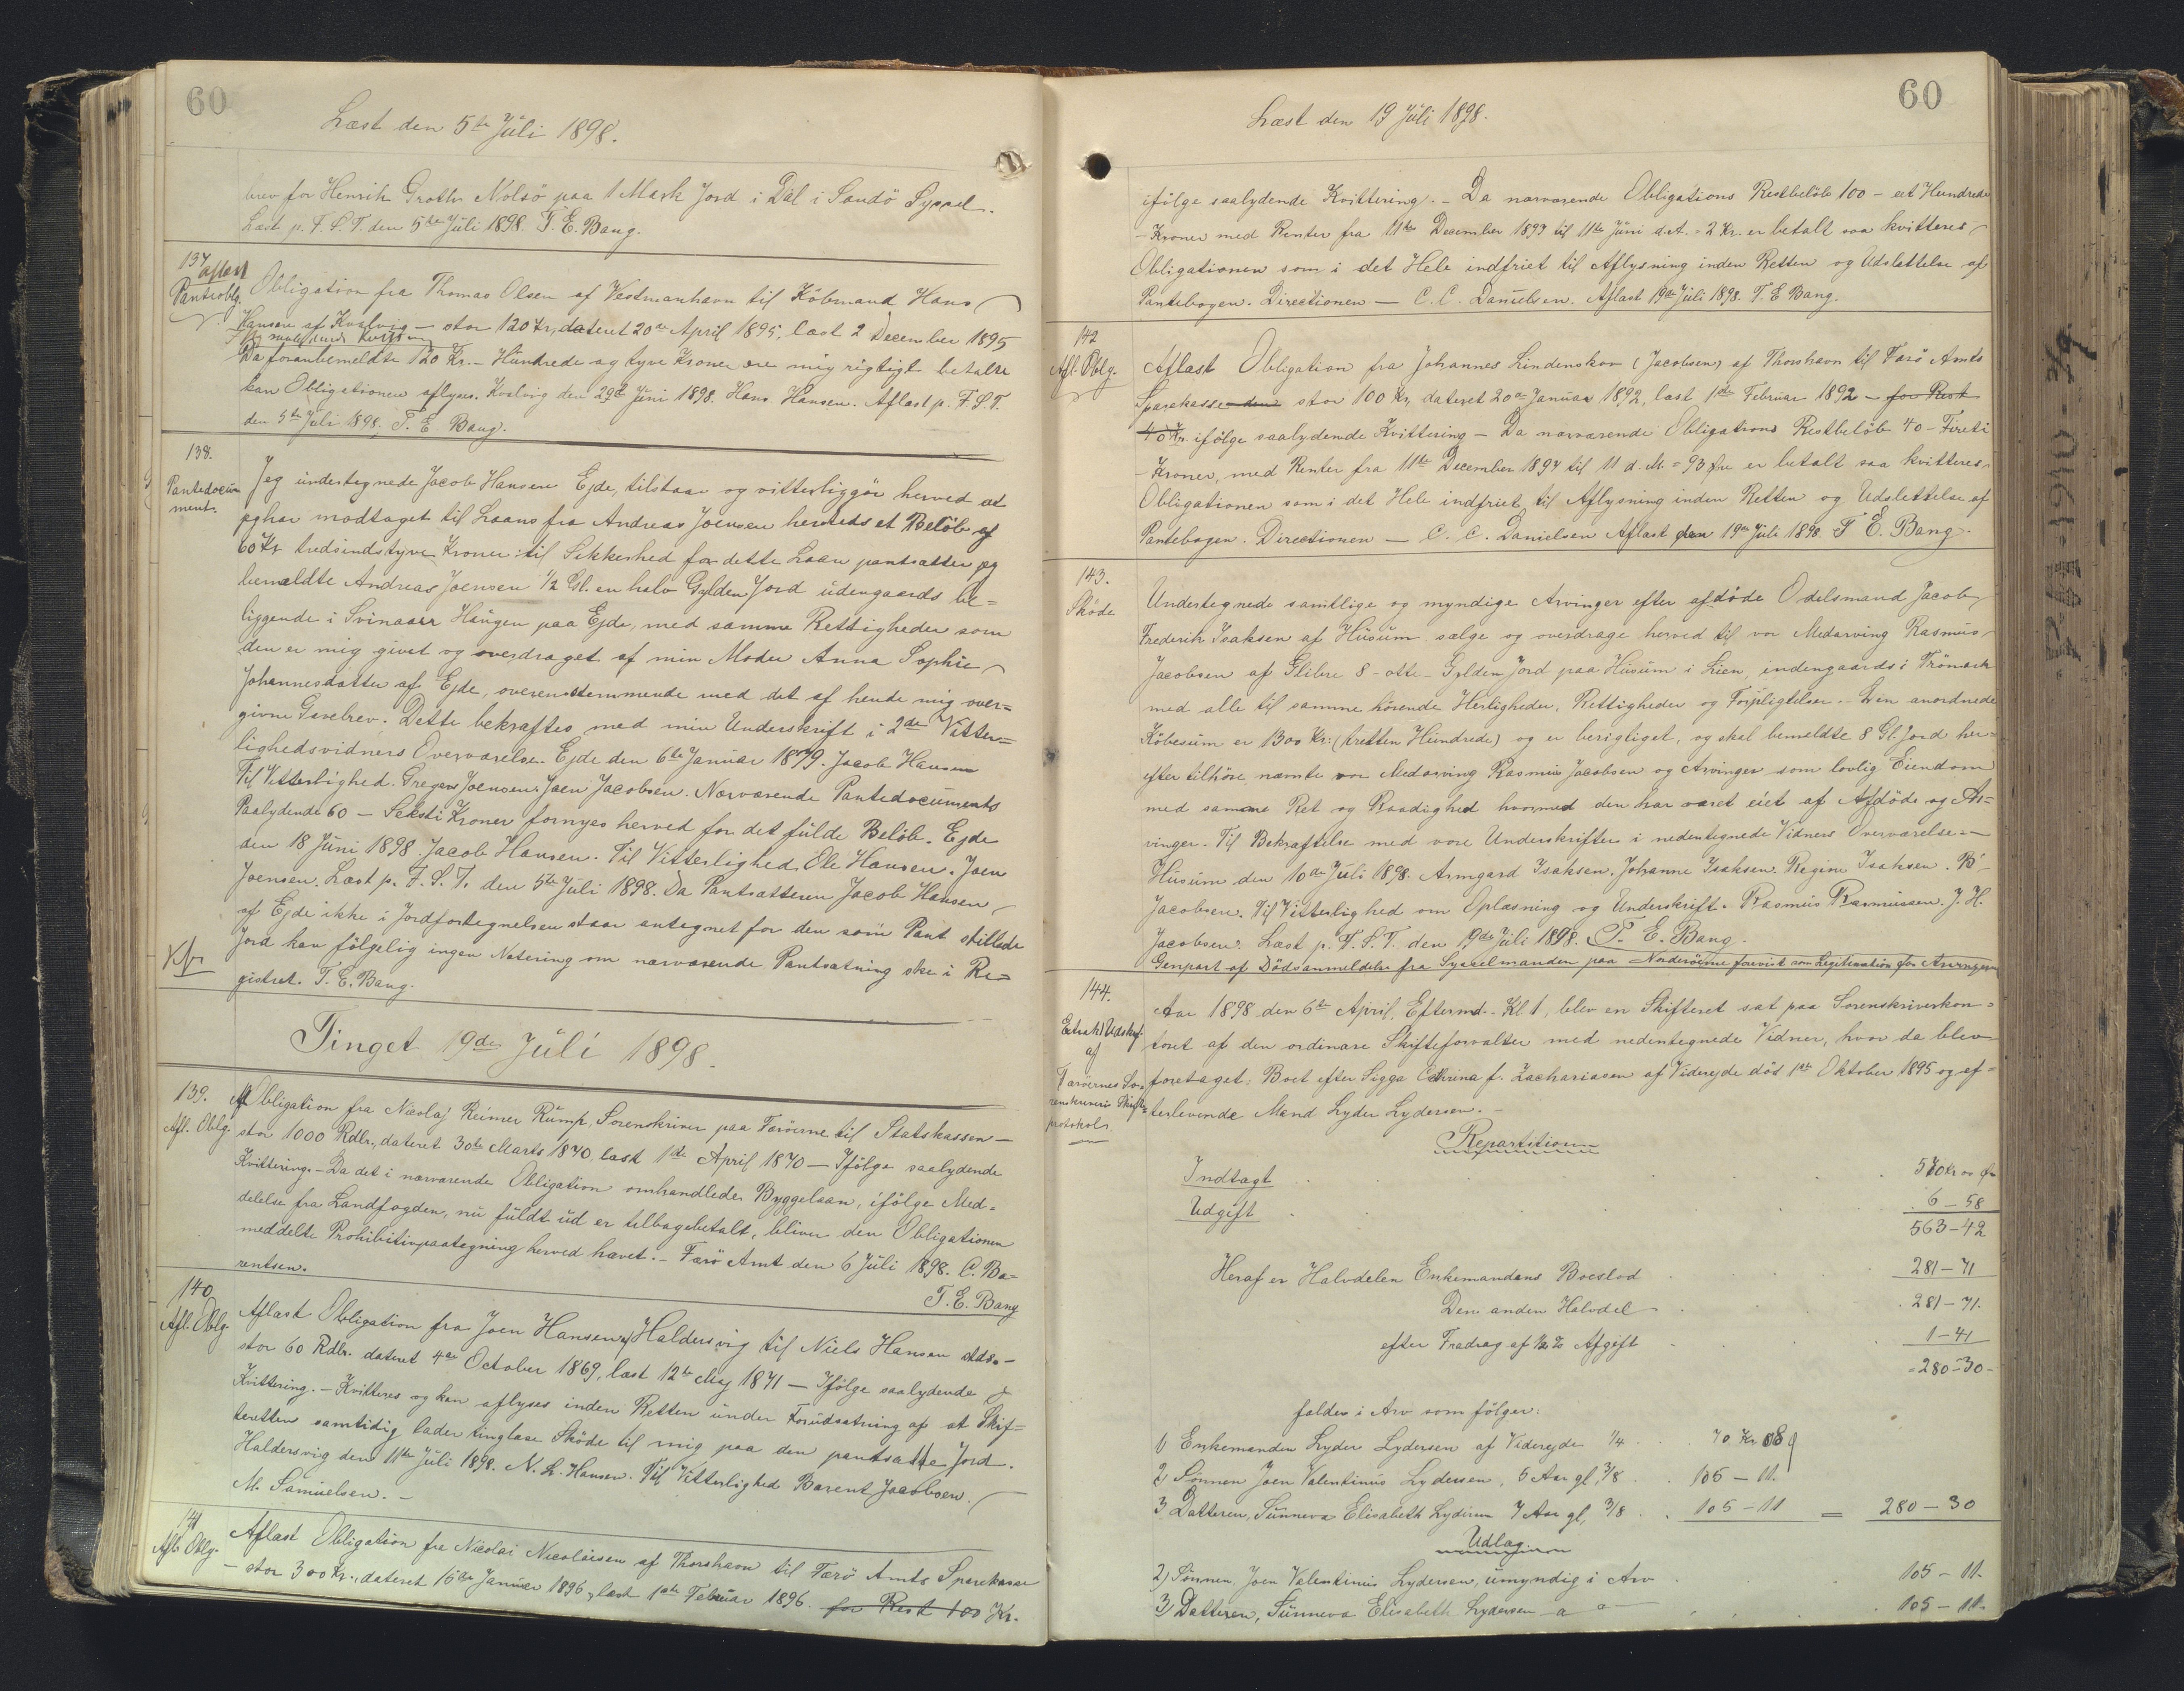 60
Læst den 5te Juli 1898.
brev for Henrik Grothe Nolsö paa 1 Mark Jord i Dal i Sandö Syssel.
Læst p. F. S. T. den 5te Juli 1898. T. E. Bang.
137
aflæst
Panteoblg.
Obligation fra Thomas Olsen af Vestmanhavn til Köbmand Hans
Hansen af Kvalvig — stor 120 Kr, dateret 20de April 1895, læst 2 December 1895
Da foranbemeldte 120 Kr. - Hundrede og tyve Kroner ere mig rigtigt betalte
kan Obligationen aflyses. Kvalvig den 29de Juni 1898. Hans Hansen. Aflæst p. F. S. T.
den 5te Juli 1898. T. E. Bang.
138.
Pantedocument.
Jeg undertegnede Jacob Hansen Ejde, tilstaar og vitterliggör herved at
jeg har modtaget til Laans fra Andreas Joensen hersteds et Belöb af
60 Kr tredsindstyve Kroner: til Sikkerhed for dette Laan pantsætter jeg
bemeldte Andreas Joensen 1/2 Gl. en halv Gylden Jord udengaards be=
liggende i Svinaarr Haugen paa Ejde, med samme Rettigheder som
den er mig givet og overdraget af min Moder Anna Sophie
Johannesdatter af Ejde, overensstemmende med det af hende mig over=
givne Gavebrev. Dette bekræftes med min Underskrift i 2de Vitter=
lighedsvidners Overværelse. Ejde den 6te Januar 1879. Jacob Hansen
Til Vitterlighed. Gregers Joensen. Joen Jacobsen. Nærværende Pantedocuments
Paalydende 60 — Seksti Kroner fornyes herved for det fulde Belöb. Ejde
den 18 Juni 1898 Jacob Hansen. Til Vitterlighed. Ole Hansen. Joen
Joensen. Læst p. F. S. T. den 5te Juli 1898. Da Pantsætteren Jacob Hansen
af Ejde ikke i Jordfortegnelsen staar antegnet for den som Pant stillede
Jord kan fölgelig ingen Notering om nærværende Pantsætning ske i Re=
gistret. T. E. Bang.
Tinget 19de Juli 1898.
139.
Afl. Oblg.
Obligation fra Nicolaj Reimer Rump, Sorenskriver paa Færöerne til Statskassen —
stor 1000 Rdlr., dateret 30te Marts 1870, læst 1ste April 1870 — Ifölge saalydende
Kvittering. - Da det i nærværende Obligation omhandlede Byggelaan, ifölge Med=
delelse fra Landfogden, nu fuldt ud er tilbagebetalt, bliver den Obligationen
meddelte Prohibitivpaategning herved hævet. - Færö Amt den 6 Juli 1898. C. Bæ=
rentsen.
T. E. Bang
140
Afl. Oblg.
Aflæst Obligation fra Joen Hansen af Haldersvig til Niels Hansen stds. -
stor 60 Rdlr. dateret 4de October 1869, læst 12te Maj 1871 — Ifölge saalydende
Kvittering. - Kvitteres og kan aflyses inden Retten under Forudsætning af at Skif=
teretten samtidig lader tinglæse Sköde til mig paa den pantsatte Jord.
Haldersvig den 11te Juli 1898. N. L. Hansen. Til Vitterlighed Barent Jacobsen.
M. Samuelsen. -
141
Afl. Oblg.
Aflæst Obligation fra Nicolai Nicolaisen af Thorshavn til Færö Amts Sparekasse
— stor 300 Kr., dateret 16de Januar 1896, læst 1ste Februar 1896. for Rest 100 Kr.
60
Læst den 19 Juli 1898.
ifölge saalydende Kvittering. - Da nærværende Obligations Restbelöb 100 - eet Hundrede
- Kroner med Renter fra 11te December 1897 til 11te Juni d.A. = 2 Kr. er betalt saa kvitteres
Obligationen som i det Hele indfriet til Aflysning inden Retten og Udslettelse af
Pantebogen. Directionen — C. C. Danielsen. Aflæst 19de Juli 1898. T. E Bang.
142
Afl. Oblg.
Aflæst Obligation fra Johannes Lindenskov (Jacobsen) af Thorshavn til Færö Amts
Sparekasse den stor 100 Kr, dateret 20de Januar 1892, læst 1ste Februar 1892 - for Rest
40 Kr. ifölge saalydende Kvittering — Da nærværende Obligations Restbelöb 40 - Fireti
- Kroner, med Renter fra 11te December 1897 til 11 d. M. = 93 Öre er betalt saa kvitteres
Obligationen som i det Hele indfriet til Aflysning inden Retten og Udslettelse af
Pantebogen. Directionen — C. C. Danielsen Aflæst den 19de Juli 1898. T E. Bang.
143.
Sköde
Undertegnede samtlige og myndige Arvinger efter afdöde Odelsmand Jacob
Frederik Isaksen af Husum sælge og overdrage herved til vor Medarving Rasmus
Jacobsen af Glibre 8 - otte - Gylden Jord paa Husum i Lien, indengaards i Trömark
med alle til samme hörende Herligheder, Rettigheder og Forpligtelser. - Den anordnede
Köbesum er 1300 Kr: (tretten Hundrede) og er berigtiget, og skal bemeldte 8 Gl. Jord her=
efter tilhöre nævnte vor Medarving Rasmus Jacobsen og Arvinger som lovlig Eiendom
med samme Ret og Raadighed hvormed den har været eiet af Afdöde og Ar=
vinger. Til Bekræftelse med vore Underskrifter i nedentegnede Vidners Overværelse. —
Husum den 10de Juli 1898. Armgard Isaksen. Johanne Isaksen. Regine Isaksen. R.
Jacobsen. Til Vitterlighed om Oplæsning og Underskrift. Rasmus Rasmussen. J. H.
Jacobsen. Læst p. F. S. T. den 19de Juli 1898. T. E. Bang.
Genpart af Dödsanmeldelse fra Sysselmanden paa Norderöerne forevist som Legitimation for Arvingerne
144.
Extrakt Udskrift
af
Færöernes So=
renskriveris Skifte=
protokol.
Aar 1898 den 6te April, Eftermd. Kl 1, blev en Skifteret sat paa Sorenskriverkon=
toret af den ordinære Skifteforvalter med nedentegnede Vidner, hvor da blev
foretaget: Boet efter Sigga Cathrina f. Zachariasen af Viderejde död 1ste Oktober 1895 og ef=
terlevende Mand Lyder Lydersen. -
Repartition
Indtægt 570 Kr 00 Öre
Udgift 6 - 58
563 - 42
Heraf er Halvdelen Enkemandens Boeslod 281 - 71
Den anden Halvdel 281 - 71.
efter Fradrag af 1/2 % Afgift 1 - 41
= 280 - 30 -
falder i Arv som fölger:
1) Enkemanden Lyder Lydersen af Viderejde 1/4 70 Kr 08
2 Sönnen Joen Valentinus Lydersen, 5 Aar gl, 3/8 105 - 11.
3 Datteren, Sunneva Elisabeth Lydersen 7 Aar gl, 3/8 105 - 11 = 280 - 30
Udlæg.
2) Sönnen Joen Valentinus Lydersen, umyndig i Arv 105 - 11.
3) Datteren, Sunneva Elisabeth Lydersen 105 - 11.